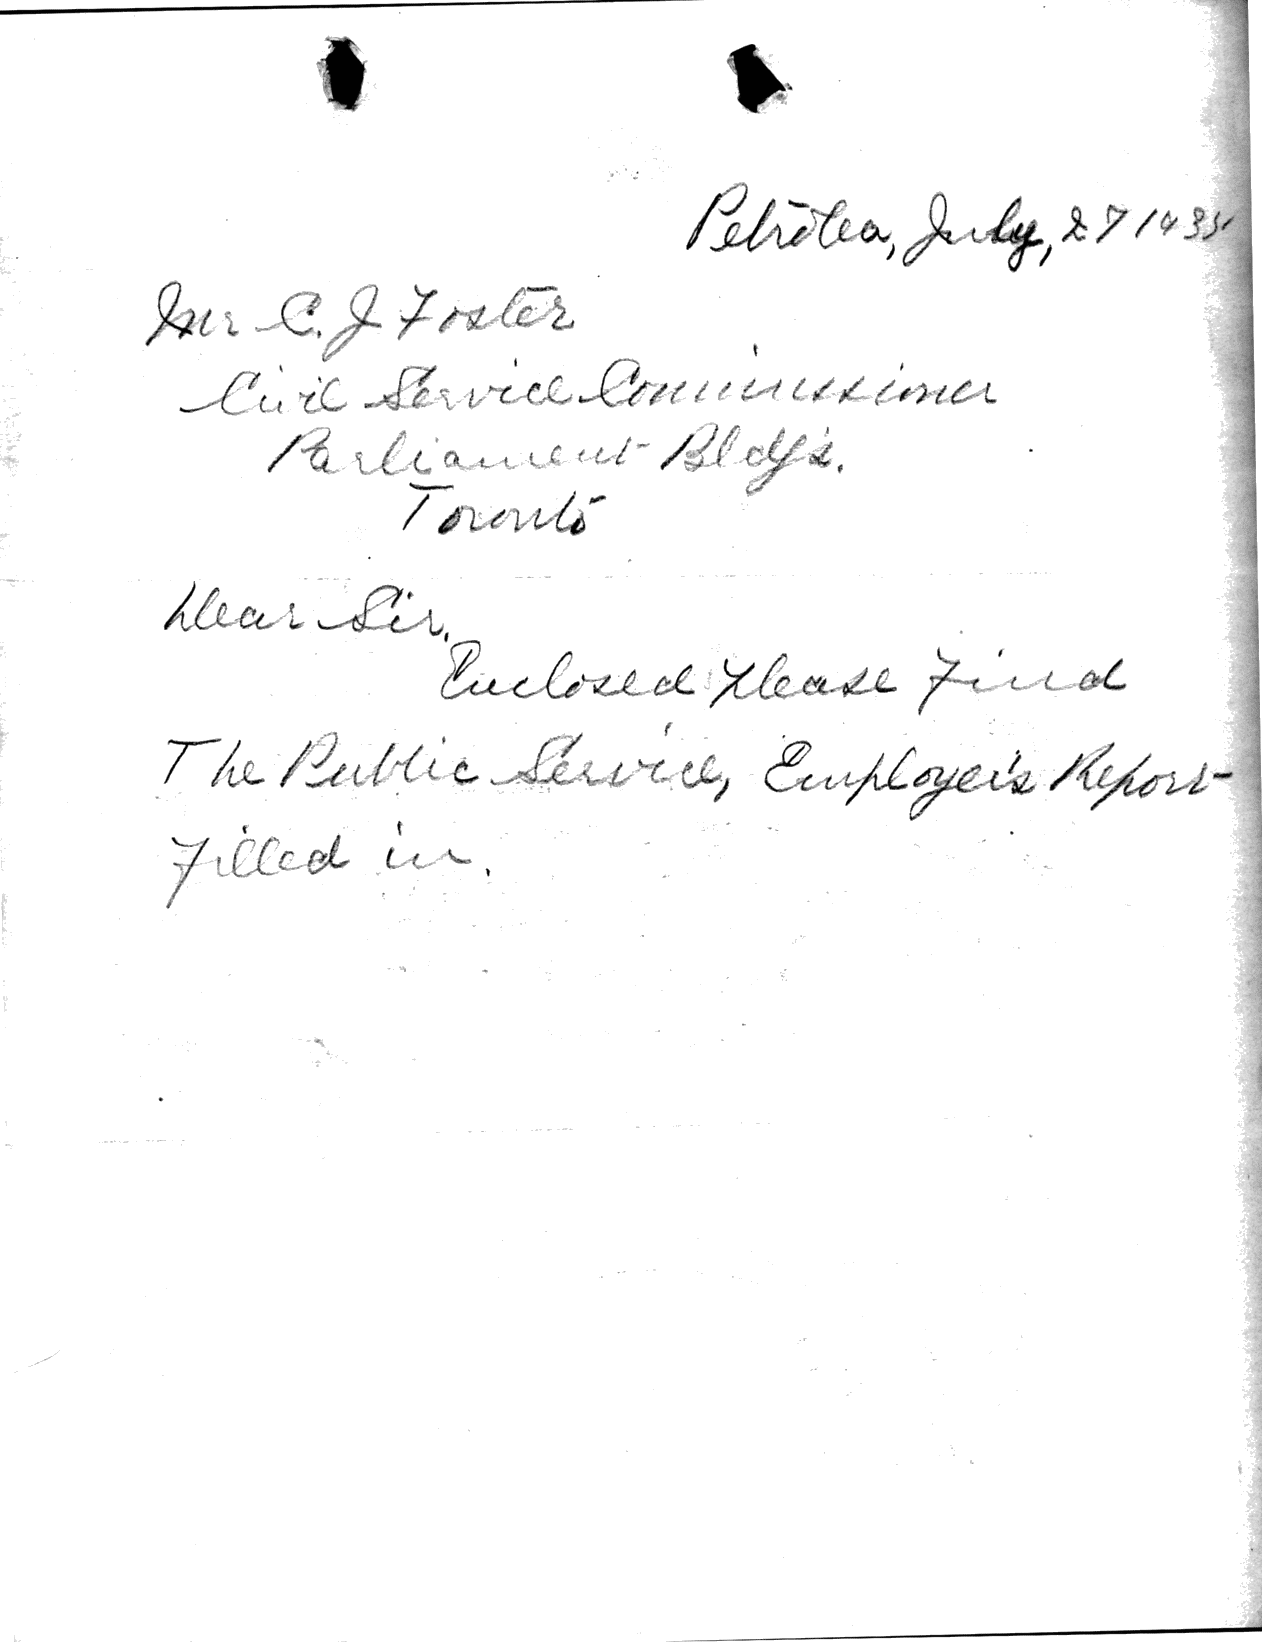 Petrolea, July, 27 1935
Mr C. J Foster
Civil Service Commissioner
Parliament Bldg's.
Toronto
Dear Sir.
Enclosed Please Find
The Public Service, Employe's Report
Filled in.